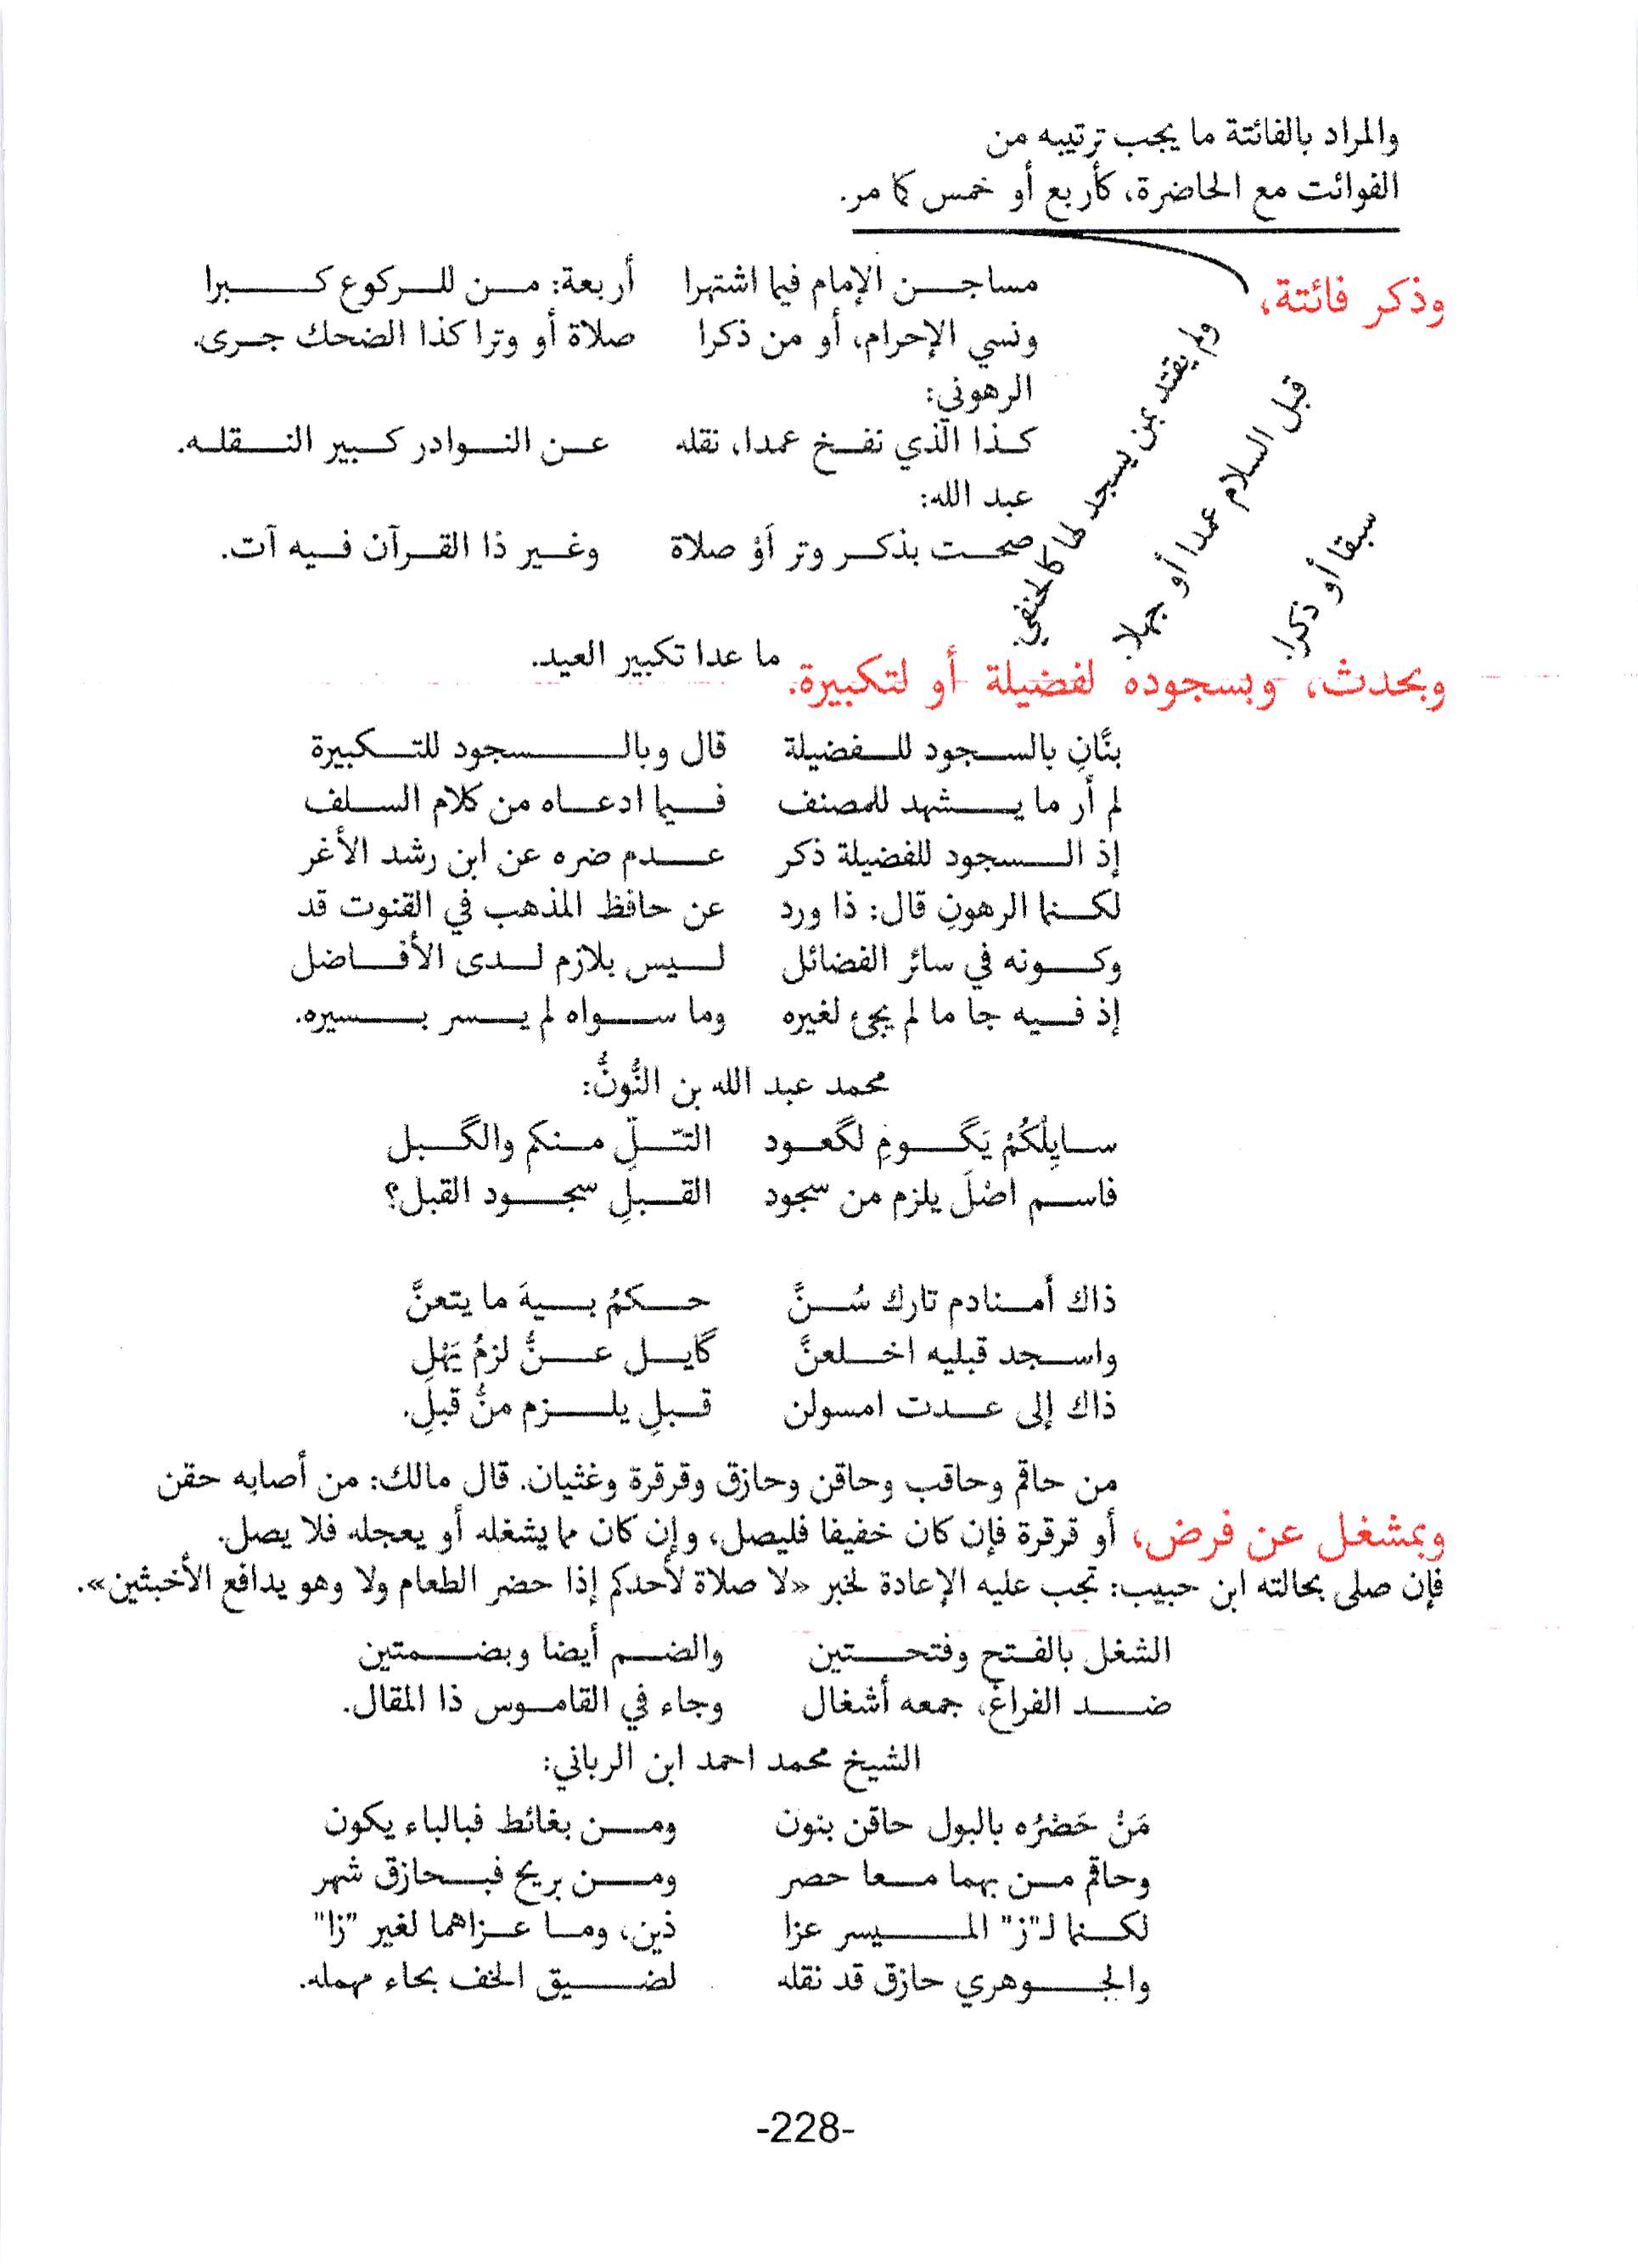 والمراد بالفائتة ما يجب ترتيبه من
الفوائت مع الحاضرة، كأربع أو خمس كما مر.
وذكر فائتة،
مساجن الإمام فيما اشتهرا أربعة: من للركوع كبرا
ونسي الإحرام، أو من ذكرا صلاة أو وترا كذا الضحك جرى.
الرهوني:
كذا الذي نفخ عمدا، نقله عن النوادر كبير النقله.
عبد الله:
صحت بذكر وتر أوْ صلاة وغير ذا القرآن فيه آت.
سبقا أو ذكرا.
قبل السلام عمدا أو جهلا.
ولم يقتد بمن يسجد لها كالحنفي.
وبحدث، وبسجوده لفضيلة أو لتكبيرة.
ما عدا تكبير العيد.
بنَّانِ بالسجود للفضيلة قال وبالسجود للتكبيرة
لم أر ما يشهد للمصنف فيما ادعاه من كلام السلف
إذ السجود للفضيلة ذكر عدم ضره عن ابن رشد الأغر
لكنما الرهونِ قال: ذا ورد عن حافظ المذهب في القنوت قد
وكونه في سائر الفضائل ليس بلازم لدى الأفاضل
إذ فيه جا ما لم يجئ لغيره وما سواه لم يسر بسيره.
محمد عبد الله بن النُّونُّ:
سايِلْكُمْ يَگومِ لگعود التّلِّ منكم والگبل
فاسم اصْلَ يلزم من سجود القبلِ سجود القبل؟
ذاك أمنادم تارك سُنَّ حكمُ بيهَ ما يتعنَّ
واسجد قبليه اخلعنَّ گايل عنُّ لزمُ يَهْلِ
ذاك إلى عدت امسولن قبلِ يلزم منُّ قبلِ.
من حاقم وحاقب وحاقن وحازق وقرقرة وغثيان. قال مالك: من أصابه حقن
وبمشغل عن فرض، أو قرقرة فإن كان خفيفا فليصل، وإن كان مما يشغله أو يعجله فلا يصل.
فإن صلى بحالته ابن حبيب: تجب عليه الإعادة لخبر «لا صلاة لأحدكم إذا حضر الطعام ولا وهو يدافع الأخبثين».
الشغل بالفتح وفتحتين والضم أيضا وبضمتين
ضد الفراغ، جمعه أشغال وجاء في القاموس ذا المقال.
الشيخ محمد احمد ابن الرباني:
مَنْ حَصْرُه بالبول حاقن بنون ومن بغائط فبالباء يكون
وحاقم من بهما معا حصر ومن بريح فبحازق شهر
لكنما لـ"ز" الميسر عزا ذين، وما عزاهما لغير "زا"
والجوهري حازق قد نقله لضيق الخف بحاء مهمله.
-228-